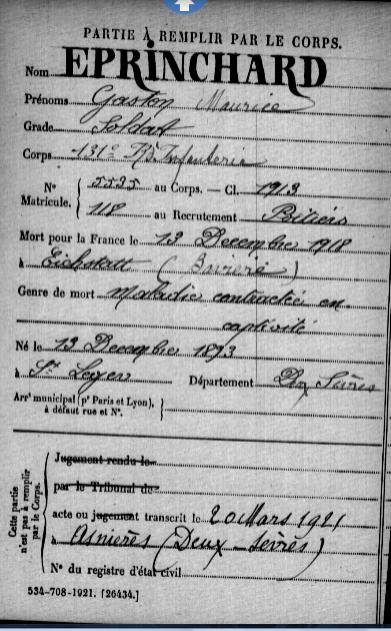 PARTIE À REMPLIR PAR LE CORPS.
Nom EPRINCHARD
Prénoms Gaston Maurice
Grade Soldat
Corps 131e Rt Infanterie
N° Matricule. { 5535 au Corps. — Cl. 1913
118 au Recrutement Poitiers
Mort pour la France le 13 Decembre 1918
à Eichstatt (Bavière)
Genre de mort Maladie contractée en
captivité
Né le 13 Decembre 1893
à St Leger Département Deux Sèvres
Arrt municipal (pr Paris et Lyon),
à défaut rue et N°.
Cette partie n'est pas à remplir par le Corps.
Jugement rendu le
par le Tribunal de
acte ou jugement transcrit le 20 Mars 1921
à Asnières (Deux-Sèvres)
N° du registre d'état civil
534-708-1921. [26434.]